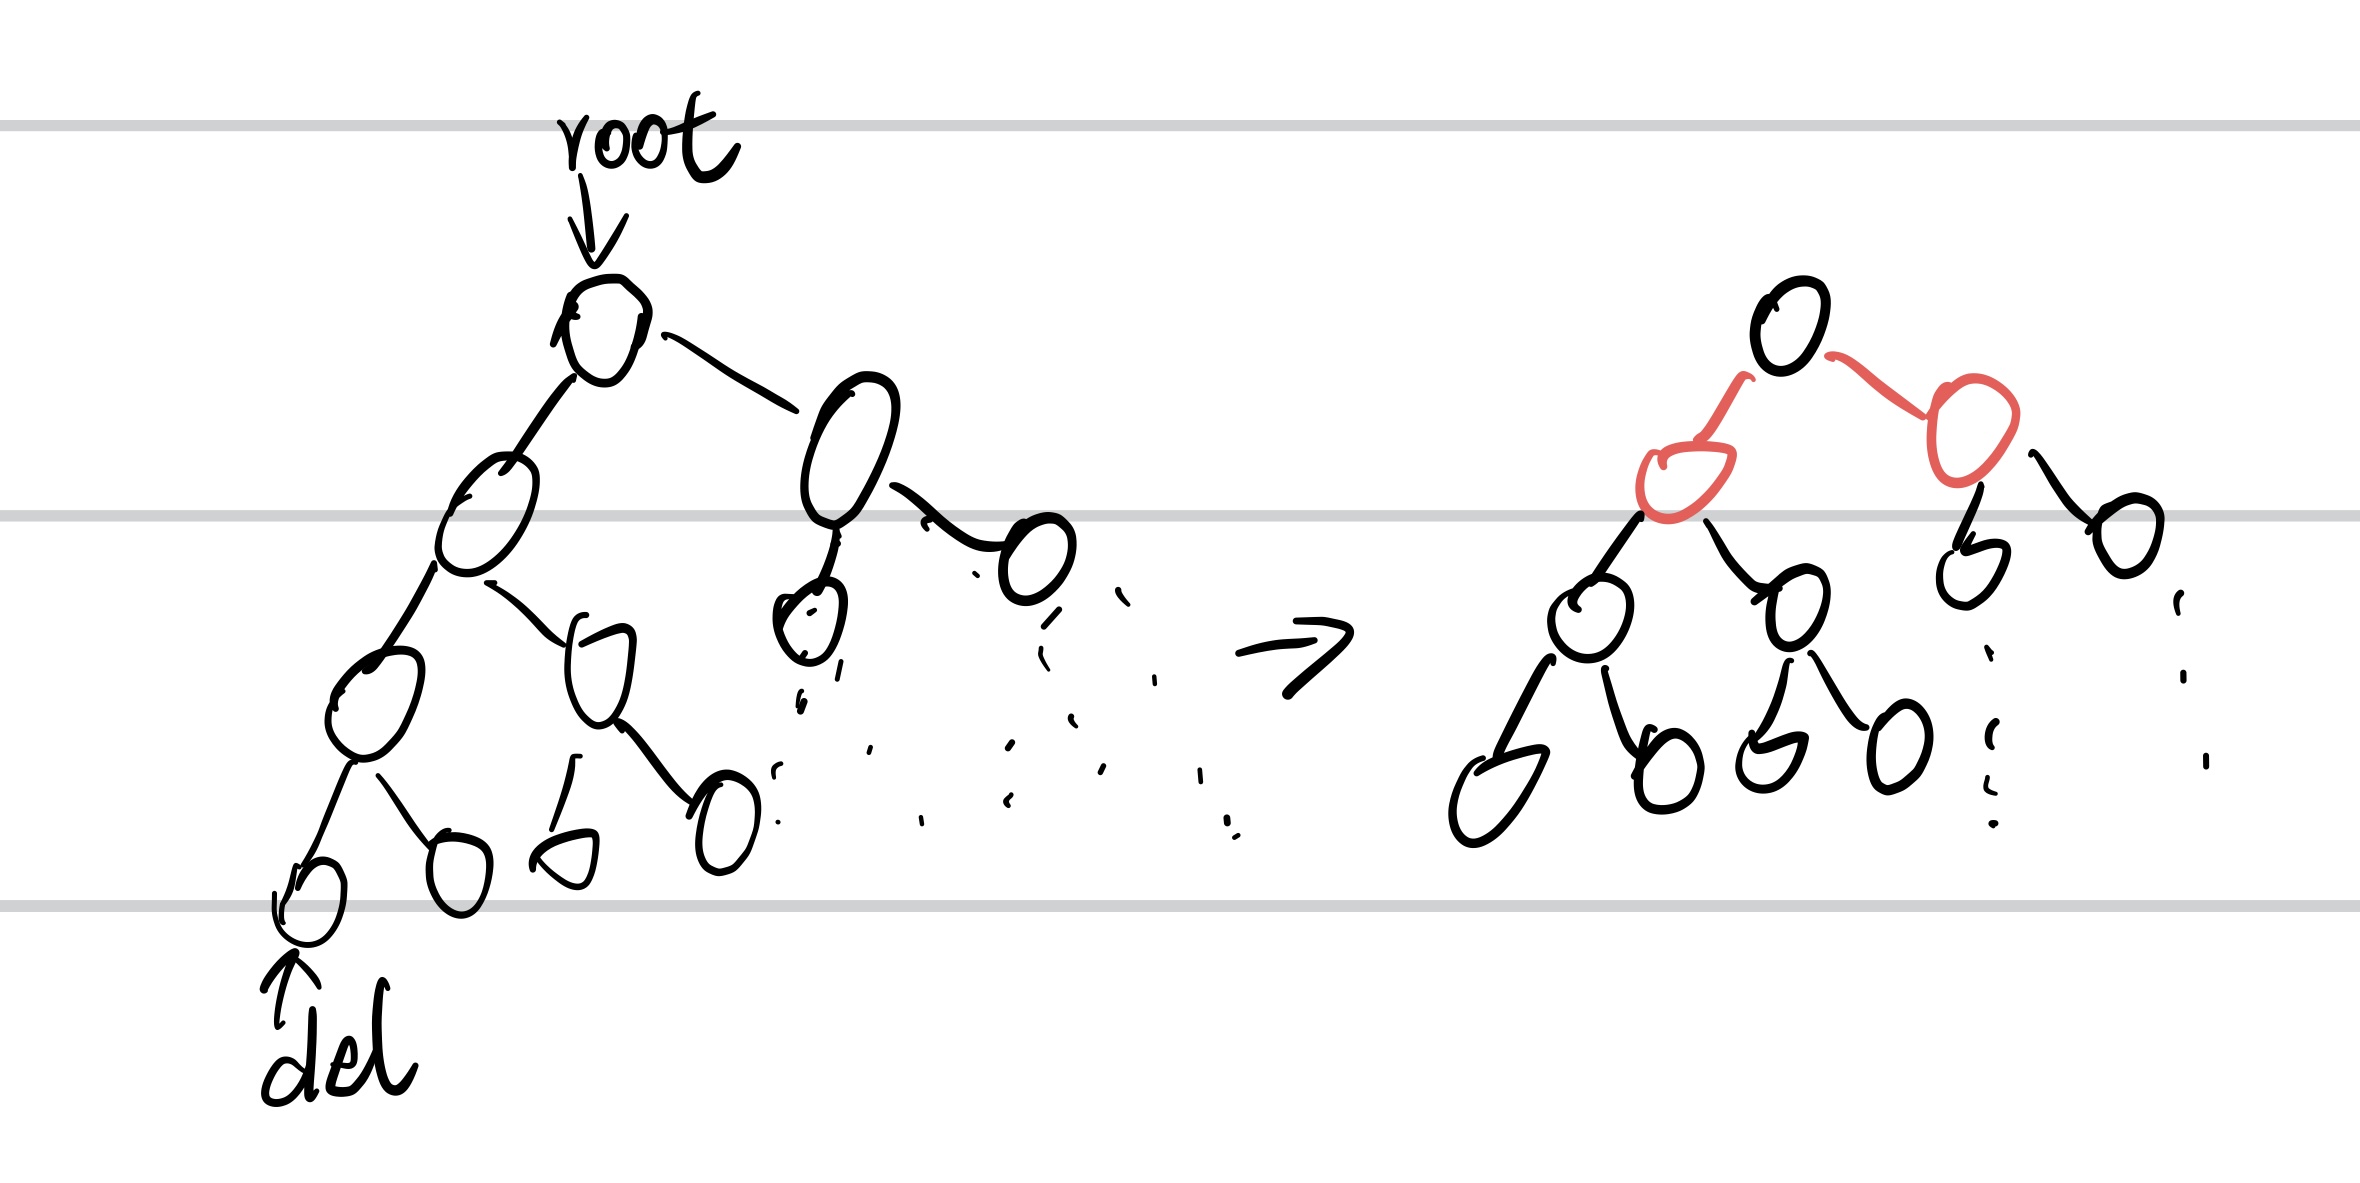 root
del